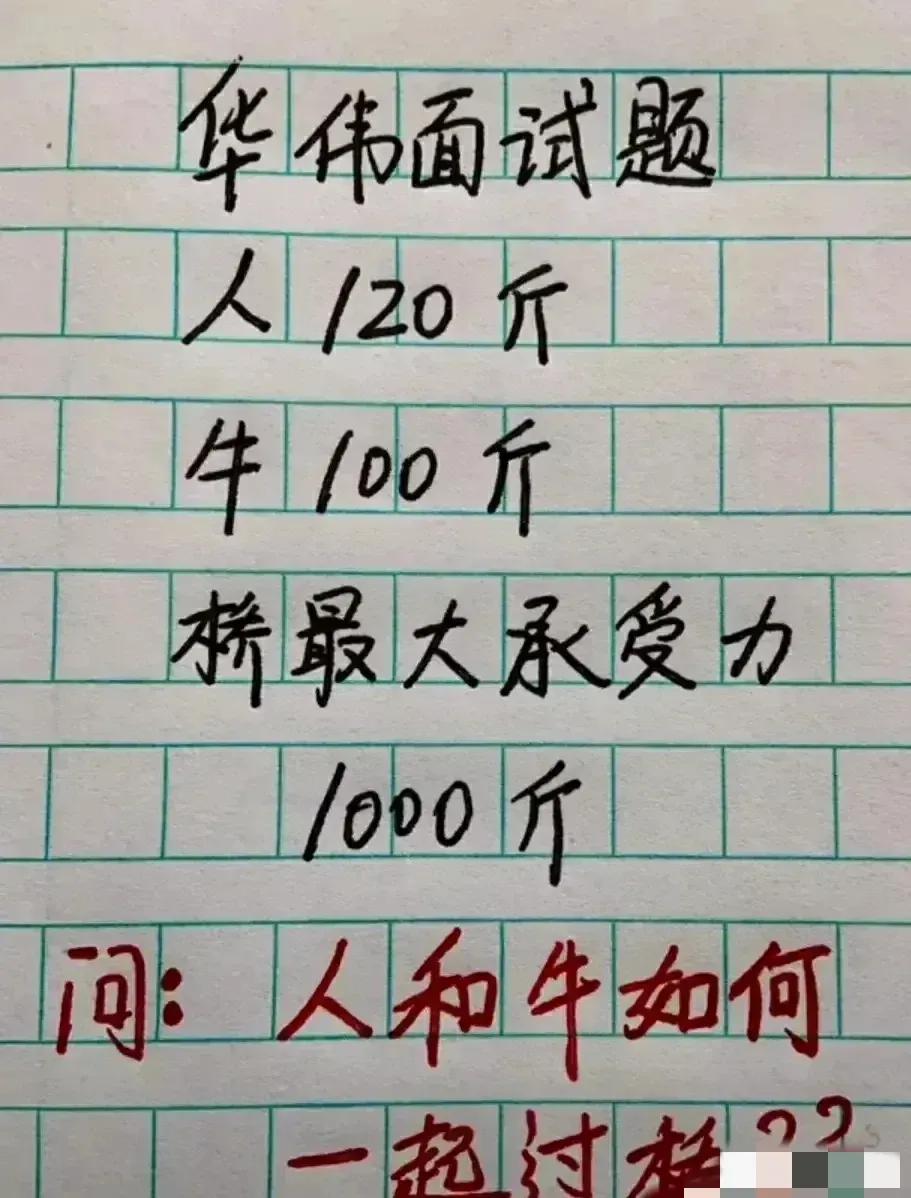 华伟面试题
人120斤
牛100斤
桥最大承受力
1000斤
问:人和牛如何
一起过桥??